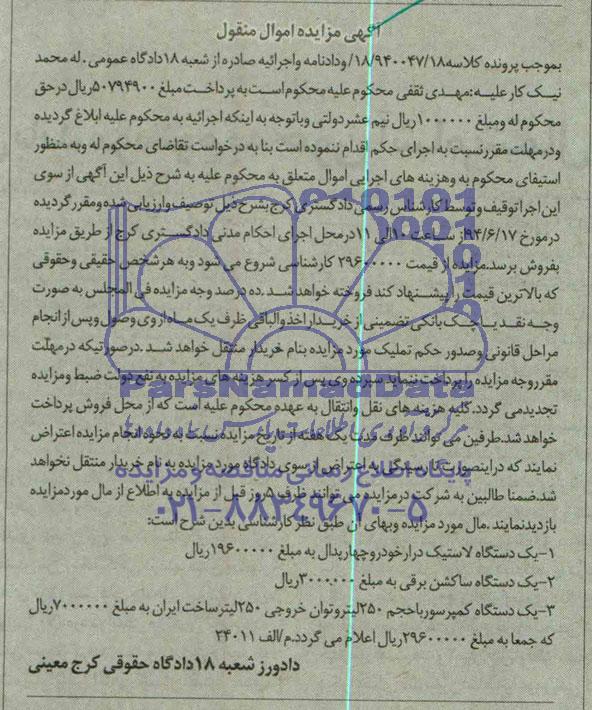 آگهی مزایده اموال منقول
بموجب پرونده کلاسه۱۸/۹۴۰۰۴۷/۱۸ودادنامه واجرائیه صادره از شعبه ۱۸دادگاه عمومی .له محمد
نیـک کار علیـه:مهـدی ثقفی محکوم علیه محکوم‌اسـت‌به پرداخـت مبلغ ۵۰۷۹۴۹۰۰ریال در حق
محکوم له ومبلغ ۱۰۰۰۰۰۰ریال نیم عشردولتی وباتوجه به اینکه اجرائیه به محکوم علیه ابلاغ گردیده
ودرمهلت مقررنسبت به اجرای حکم اقدام ننموده است بنا به درخواست تقاضای محکوم له وبه منظور
استیفای محکوم به وهزینه های اجرایی اموال متعلق به محکوم علیه به شرح ذیل این آگهی از سوی
این اجرا توقیف وتوسط کارشناس رسمی دادگستری کرج بشرح ذیل توصیف وارزیابی شده ومقرر گردیده
درمورخ ۹۴/۶/۱۷از سـاعت ۱۰الی ۱۱درمحل اجرای احکام مدنی دادگسـتری کرج از طریق مزایده
بفروش برسد.مزایده از قیمت ۲۹۶۰۰۰۰۰ کارشناسی شروع می شود وبه هرشخص حقیقی وحقوقی
که بالاترین قیمت را پیشـنهاد کند فروخته خواهد شـد .ده درصد وجه مزایده فی المجلس به صورت
وجـه نقـد یـا چـک بانکی تضمینی از خریـدار اخذ والباقی ظرف یک مـاه از وی وصول وپس از انجام
مراحل قانونی وصدور حکم تملیک مورد مزایده بنام خریدار منتقل خواهد شـد .درصورتیکه در مهلت
مقرروجه مزایده را پرداخت ننماید سپرده وی پس از کسر هزینه های مزایده به نفع دولت ضبط ومزایده
تجدیدمی گردد.کلیه هزینه های نقل وانتقال به عهده محکوم علیه است که از محل فروش پرداخت
خواهد شد.طرفین می توانند ظرف مدت یک هفته از تاریخ مزایده نسبت به نحوه انجام مزایده اعتراض
نمایند که دراینصورت تا رسیدگی به اعتراض از سوی دادگاه مورد مزایده به نام خریدار منتقل نخواهد
شد.ضمنا طالبین به شرکت درمزایده می توانند ظرف ۵روز قبل از مزایده به اطلاع از مال موردمزایده
بازدیدنمایند .مال مورد مزایده وبهای آن طبق نظر کارشناسی بدین شرح است:
۱-یک دستگاه لاستیک درار خودروچهارپدال به مبلغ ۱۹۶۰۰۰۰۰ریال
۲-یک دستگاه ساکشن برقی به مبلغ ۳۰۰۰,۰۰۰ریال
۳-یک دستگاه کمپرسورباحجم ۲۵۰لیتروتوان خروجی ۲۵۰لیترساخت ایران به مبلغ ۷۰۰۰۰۰۰ریال
که جمعا به مبلغ ۲۹۶۰۰۰۰۰ریال اعلام می گردد.م/الف ۲۴۰۱۱
دادورز شعبه ۱۸دادگاه حقوقی کرج معینی
ParsNamadData
پایگاه اطلاع رسانی مناقصه و مزایده
۰۲۱-۸۸۳۴۹۶۷۰-۵